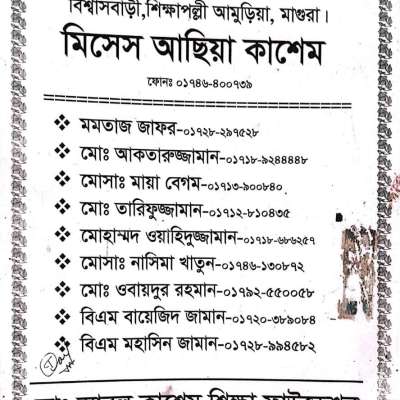 বিশ্বাসবাড়ী,শিক্ষাপল্লী আমুড়িয়া, মাগুরা।
মিসেস আছিয়া কাশেম
ফোনঃ ০১৭৪৬-৪০০৭৩৯
❖ মমতাজ জাফর-০১৭২৮-২৯৭৫২৮
❖ মোঃ আকতারুজ্জামান-০১৭১৮-৯২৪৪৪৪৮
❖ মোসাঃ মায়া বেগম-০১৭১৩-৯০০৮৪০
❖ মোঃ তারিফুজ্জামান-০১৭১২-৮১০৪৩৫
❖ মোহাম্মদ ওয়াহিদুজ্জামান-০১৭১৮-৬৮৬২৫৭
❖ মোসাঃ নাসিমা খাতুন-০১৭৪৬-১৩০৮৭২
❖ মোঃ ওবায়দুর রহমান-০১৭৯২-৫৫০০৫৮
❖ বিএম বায়েজিদ জামান-০১৭২০-৩৮৯০৮৪
❖ বিএম মহাসিন জামান-০১৭২৮-৯৯৪৫৮২